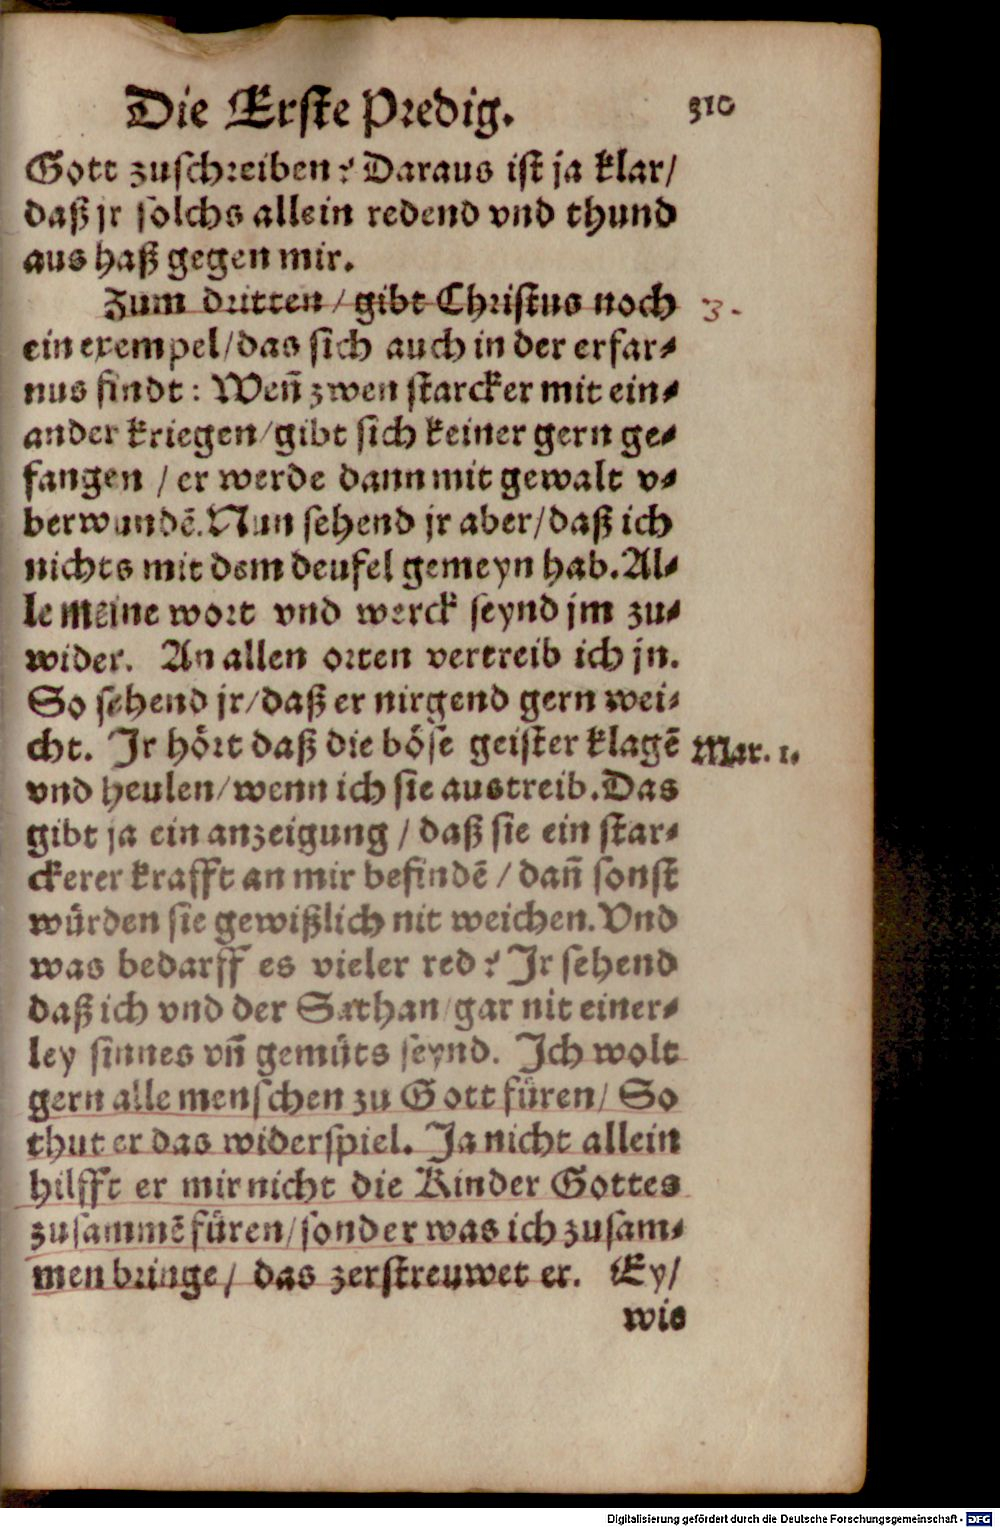 Die Erste Predig. 310
Gott zuschreiben? Daraus ist ja klar/
daß jr solchs allein redend vnd thund
aus haß gegen mir.
Zum dritten / gibt Christus noch 3.
ein exempel/das sich auch in der erfar⸗
nus findt: Weñ zwen starcker mit ein⸗
ander kriegen/gibt sich keiner gern ge⸗
fangen / er werde dann mit gewalt v⸗
berwundẽ. Nun sehend jr aber/daß ich
nichts mit dem deufel gemeyn hab. Al⸗
le meine wort vnd werck seynd jm zu⸗
wider. An allen orten vertreib ich jn.
So sehend jr/daß er nirgend gern wei⸗
cht. Jr hört daß die böse geister klagẽ Mar. 1.
vnd heulen/wenn ich sie austreib. Das
gibt ja ein anzeigung / daß sie ein star⸗
ckerer krafft an mir befindẽ / dañ sonst
würden sie gewißlich nit weichen. Vnd
was bedarff es vieler red? Jr sehend
daß ich vnd der Sathan/gar nit einer⸗
ley sinnes vñ gemüts seynd. Ich wolt
gern alle menschen zu Gott füren/ So
thut er das widerspiel. Ja nicht allein
hilfft er mir nicht die Kinder Gottes
zusammẽ füren/sonder was ich zusam⸗
men bringe/ das zerstreuwet er. Ey/
wie
Digitalisierung gefördert durch die Deutsche Forschungsgemeinschaft - DFG